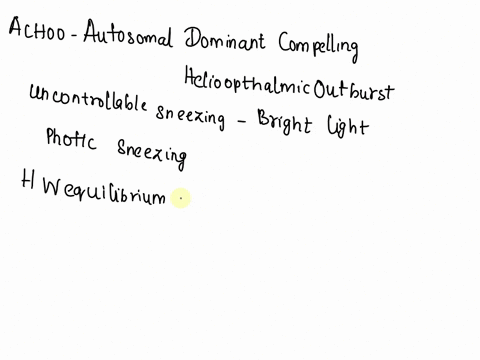 ACHOO - Autosomal Dominant Compelling
Helioopthalmic Outburst
Uncontrollable sneezing - Bright light
Photic sneezing
H W equilibrium